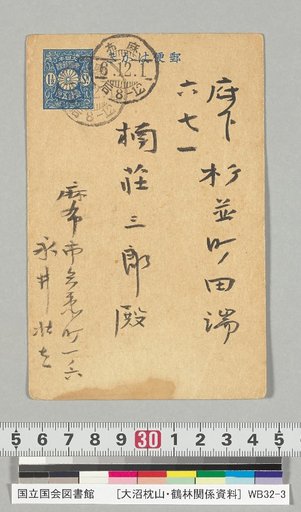 郵便はかき
麻布
6.12.1
8-12
府下杉並町田端
六七一
楠荘三郎殿
麻布市兵衛町一ノ六
永井壮吉
5 6 7 8 9 30 1 2 3 4 5
国立国会図書館 [大沼枕山・鶴林関係資料] WB32-3